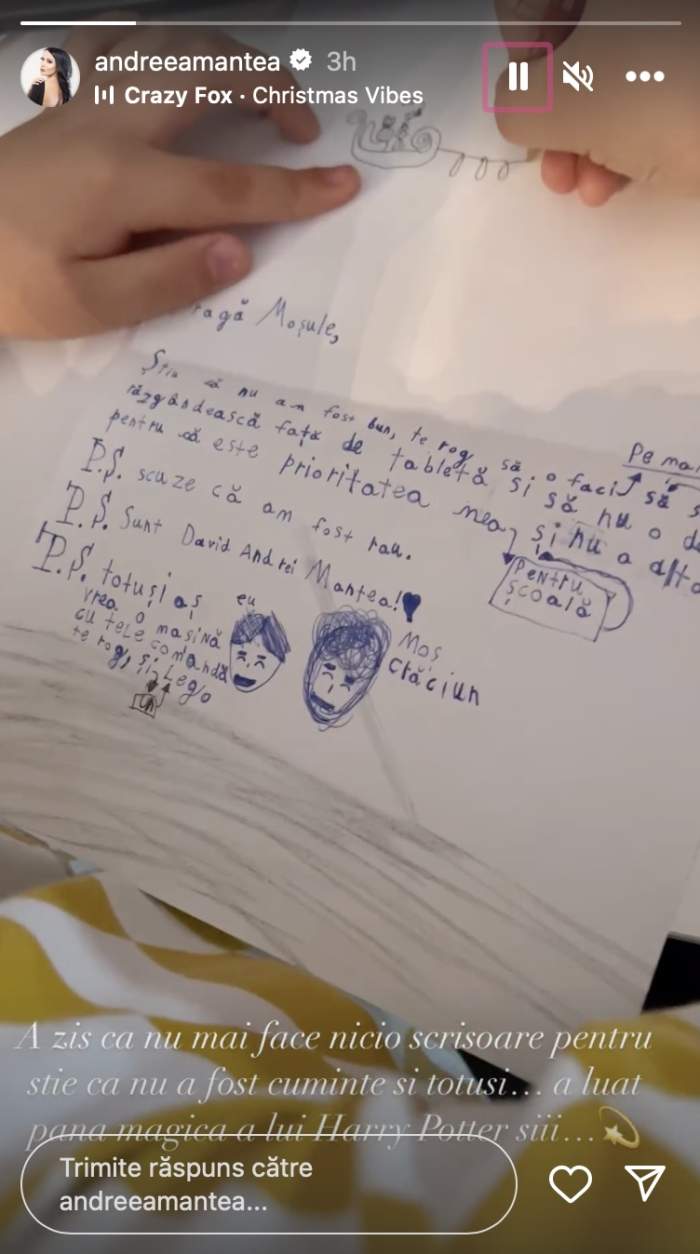 andreeamantea 3h
Crazy Fox · Christmas Vibes
ragă Moșule,
Știu că nu am fost bun, te rog să o faci să s
răzgândească față de tabletă și să nu o d
pentru că este prioritatea mea, și nu a alto
Pe ma
pentru
școală
P.S. scuze că am fost rau.
P.S. Sunt David Andrei Mantea!
P.S. totuși aș
vrea o mașină
cu telecomandă
te rog, și Lego
un
eu
Moș
Crăciun
A zis ca nu mai face nicio scrisoare pentru
stie ca nu a fost cuminte si totusi... a luat
pana magica a lui Harry Potter siii...
Trimite răspuns către
andreeamantea...